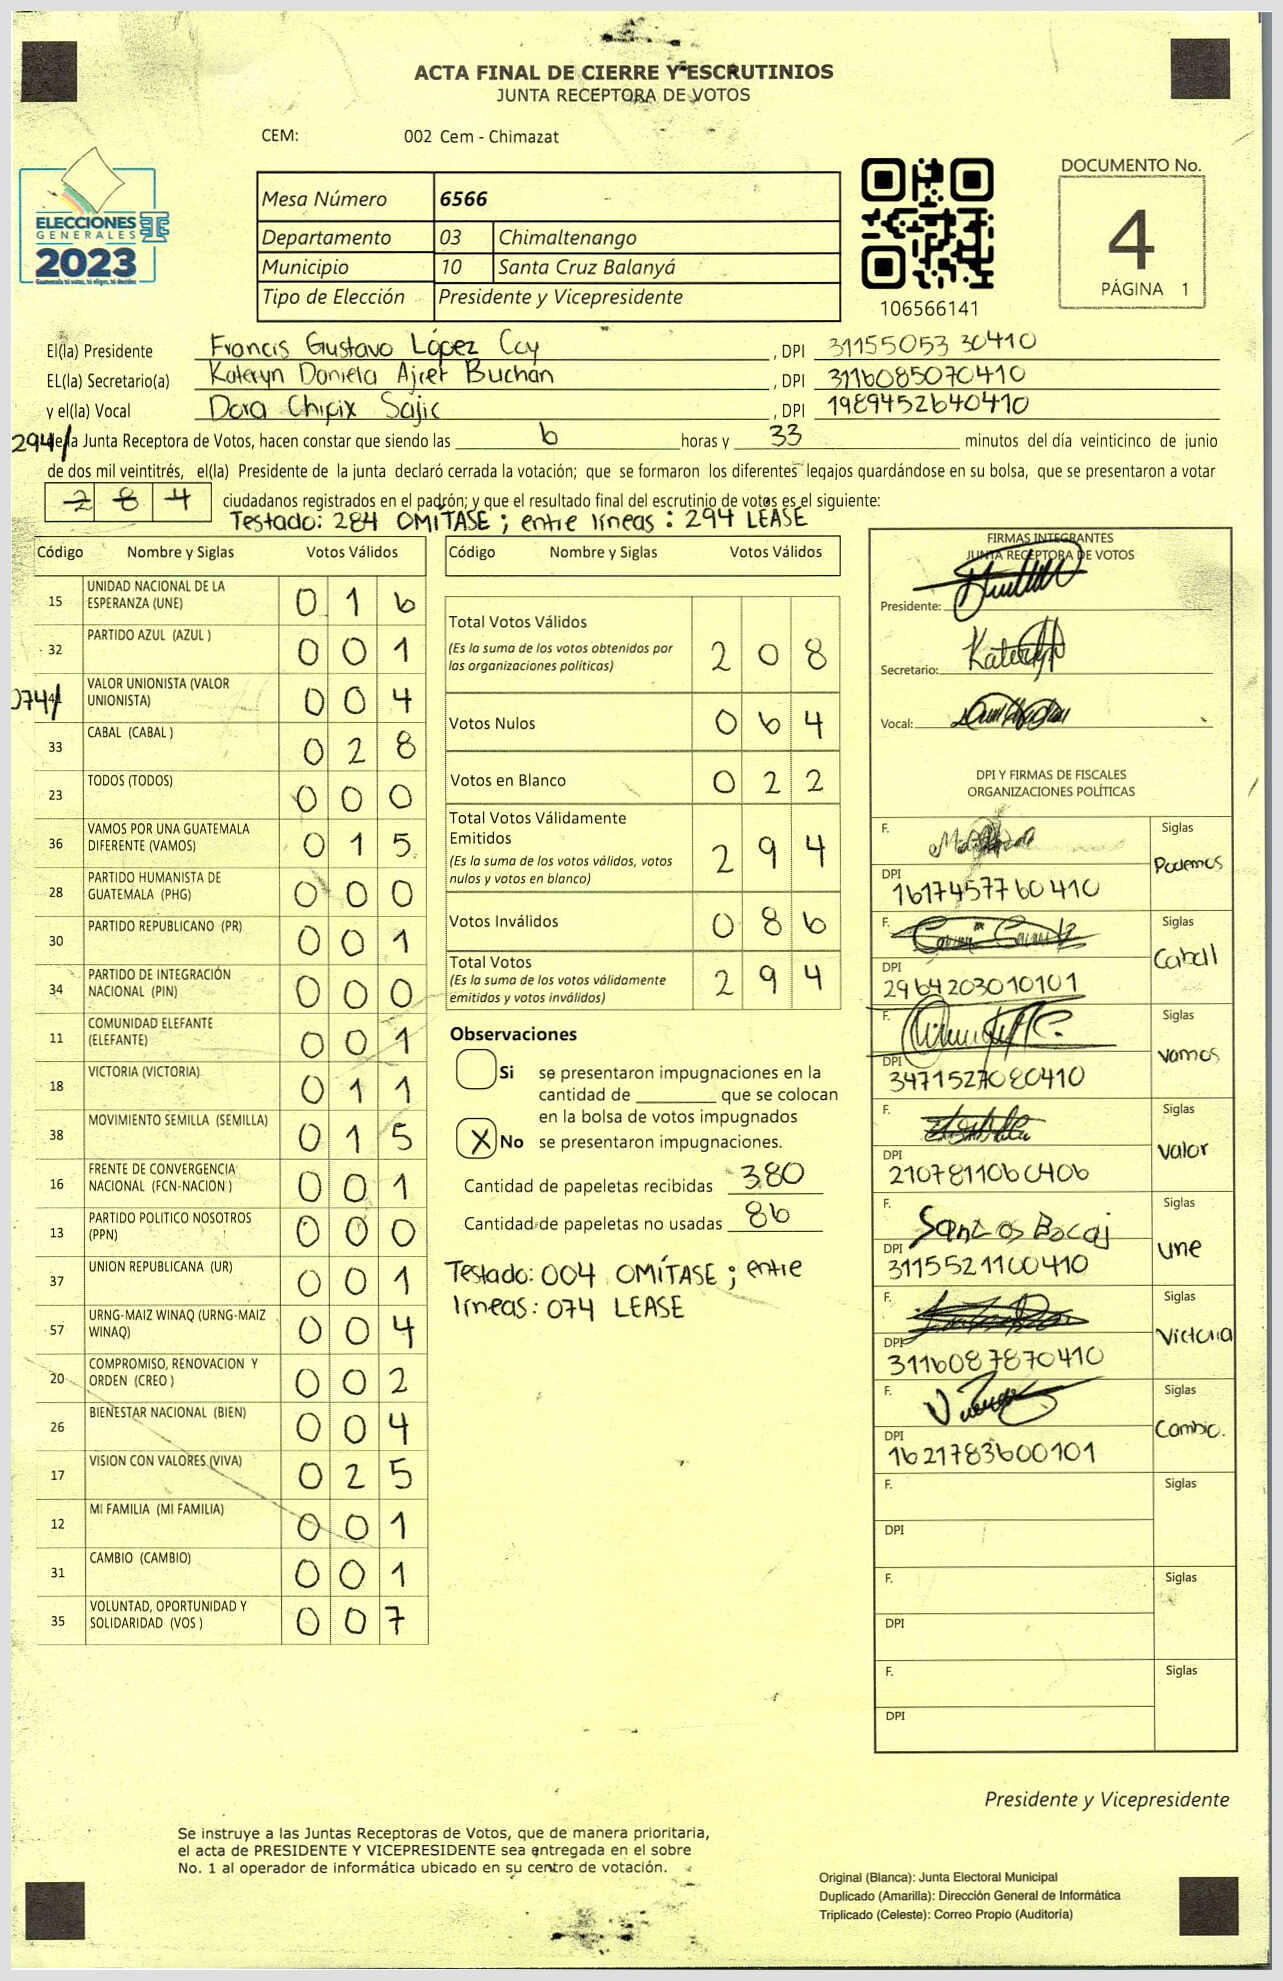 ACTA FINAL DE CIERRE Y ESCRUTINIOS
JUNTA RECEPTORA DE VOTOS
CEM: 002 Cem - Chimazat
ELECCIONES
GENERALES
2023
Guatemala tú votas, tú eliges, tú decides
Mesa Número 6566
Departamento 03 Chimaltenango
Municipio 10 Santa Cruz Balanyá
Tipo de Elección Presidente y Vicepresidente
106566141
DOCUMENTO No.
4
PÁGINA 1
El(la) Presidente Francis Gustavo López Coy , DPI 31155053 30410
EL(la) Secretario(a) Kateryn Daniela Ajret Buchan , DPI 3116085070410
y el(la) Vocal Dora Chipix Sajic , DPI 1989452640410
294/ de la Junta Receptora de Votos, hacen constar que siendo las 6 horas y 33 minutos del día veinticinco de junio
de dos mil veintitrés, el(la) Presidente de la junta declaró cerrada la votación; que se formaron los diferentes legajos quardándose en su bolsa, que se presentaron a votar
284 ciudadanos registrados en el padrón; y que el resultado final del escrutinio de votos es el siguiente:
Testado: 284 OMÍTASE ; entre líneas : 294 LEASE
Código Nombre y Siglas Votos Válidos
15 UNIDAD NACIONAL DE LA ESPERANZA (UNE) 0 1 6
32 PARTIDO AZUL (AZUL ) 0 0 1
074/ 41 VALOR UNIONISTA (VALOR UNIONISTA) 0 0 4
33 CABAL (CABAL ) 0 2 8
23 TODOS (TODOS) 0 0 0
36 VAMOS POR UNA GUATEMALA DIFERENTE (VAMOS) 0 1 5
28 PARTIDO HUMANISTA DE GUATEMALA (PHG) 0 0 0
30 PARTIDO REPUBLICANO (PR) 0 0 1
34 PARTIDO DE INTEGRACIÓN NACIONAL (PIN) 0 0 0
11 COMUNIDAD ELEFANTE (ELEFANTE) 0 0 1
18 VICTORIA (VICTORIA) 0 1 1
38 MOVIMIENTO SEMILLA (SEMILLA) 0 1 5
16 FRENTE DE CONVERGENCIA NACIONAL (FCN-NACION ) 0 0 1
13 PARTIDO POLITICO NOSOTROS (PPN) 0 0 0
37 UNION REPUBLICANA (UR) 0 0 1
57 URNG-MAIZ WINAQ (URNG-MAIZ WINAQ) 0 0 4
20 COMPROMISO, RENOVACION Y ORDEN (CREO ) 0 0 2
26 BIENESTAR NACIONAL (BIEN) 0 0 4
17 VISION CON VALORES (VIVA) 0 2 5
12 MI FAMILIA (MI FAMILIA) 0 0 1
31 CAMBIO (CAMBIO) 0 0 1
35 VOLUNTAD, OPORTUNIDAD Y SOLIDARIDAD (VOS ) 0 0 7
Código Nombre y Siglas Votos Válidos
Total Votos Válidos 2 0 8
(Es la suma de los votos obtenidos por
las organizaciones políticas)
Votos Nulos 0 6 4
Votos en Blanco 0 2 2
Total Votos Válidamente
Emitidos 2 9 4
(Es la suma de los votos válidos, votos
nulos y votos en blanco)
Votos Inválidos 0 8 6
Total Votos 2 9 4
(Es la suma de los votos válidamente
emitidos y votos inválidos)
Observaciones
Si se presentaron impugnaciones en la
cantidad de que se colocan
en la bolsa de votos impugnados
X No se presentaron impugnaciones.
Cantidad de papeletas recibidas 380
Cantidad de papeletas no usadas 86
Testado: 004 OMÍTASE ; entre
líneas: 074 LEASE
FIRMAS INTEGRANTES
JUNTA RECEPTORA DE VOTOS
Presidente:
Secretario:
Vocal:
DPI Y FIRMAS DE FISCALES
ORGANIZACIONES POLÍTICAS
F. Siglas Podemos
DPI 1617457760410
F. Siglas Caball
DPI 2964203010101
F. Siglas vamos
DPI 3471527080410
F. Siglas valor
DPI 2107811060406
F. Santos Bocaj Siglas une
DPI 3115521100410
F. Siglas Victoria
DPI 3116087870410
F. Siglas Cambio.
DPI 1621783600101
F. Siglas
DPI
F. Siglas
DPI
F. Siglas
DPI
Presidente y Vicepresidente
Se instruye a las Juntas Receptoras de Votos, que de manera prioritaria,
el acta de PRESIDENTE Y VICEPRESIDENTE sea entregada en el sobre
No. 1 al operador de informática ubicado en su centro de votación.
Original (Blanca): Junta Electoral Municipal
Duplicado (Amarilla): Dirección General de Informática
Triplicado (Celeste): Correo Propio (Auditoría)